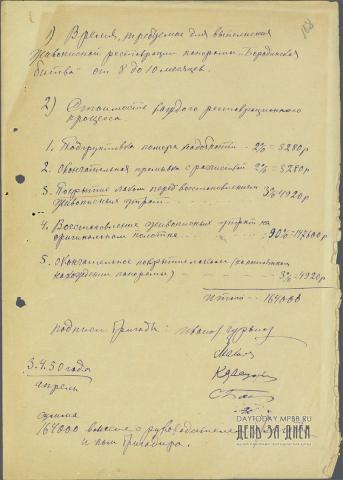 1) Время, требуемое для выполнения
живописной реставрации панорамы „Бородинская
битва" от 8 до 10 месяцев.
2) Стоимость каждого реставрационного
процесса
1. Подгрунтовка по мере надобности - - 2% = 3280 р
2. Окончательная промывка с расчисткой 2% = 3280 р
3. Покрытие лаком перед восстановлением
живописных утрат - 3% 4920 р
4. Восстановление живописных утрат на
оригинальном полотне - - 90% - 147600 р
5. Окончательное покрытие лаком
нахождении панорамы) - 3% 4920 р
Итого - 164000
подписи бригады:
3.4.50 года
апрель
сумма
164000 вместе с руководителем
и пом бригадира.
DAYTODAY.MPBB.RU
ДЕНЬ ЗА ДНЕМ